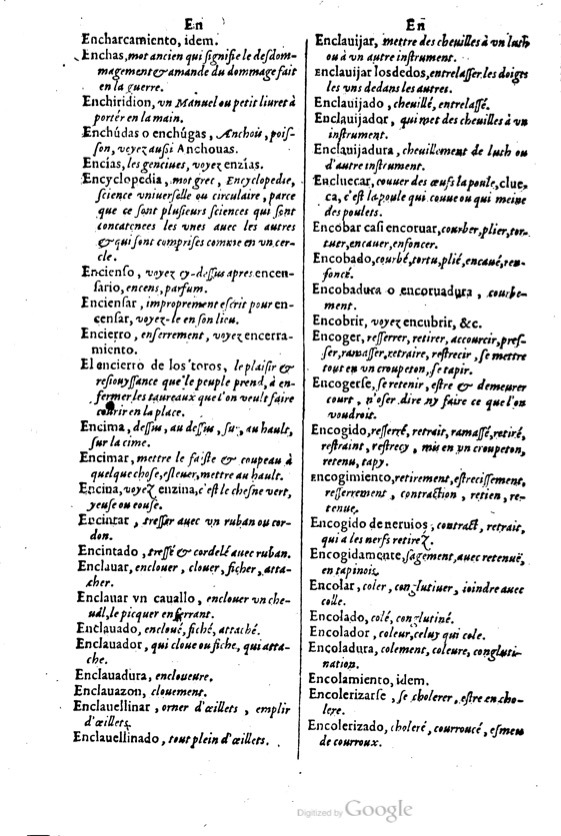 En
Encharcamiento, idem.
Enchas, mot ancien qui signifie le desdom-
magement & amande du dommage fait
en la guerre.
Enchiridion, vn Manuel ou petit liuret à
portér en la main.
Enchúdas o enchúgas, Anchois, pois-
son, voyez aussi Anchouas.
Encías, les genciues, voyez enzías.
Encyclopedia, mot grec, Encyclopedie,
science vniuerselle ou circulaire, parce
que ce sont plusieurs sciences qui sont
concatenees les vnes auec les autres
& qui sont comprises comme en vn cer-
cle.
Encienso, voyez cy-dessus apres encen-
sario, encens, parfum.
Enciensar, improprement escrit pour en-
censar, voyez-le en son lieu.
Encierro, enserrement, voyez encerra-
miento.
El encierro de los toros, le plaisir &
resiouyssance que le peuple prend, à en-
fermer les taureaux que l'on veult faire
courir en la place.
Encima, dessus, au dessus, sur, au hault,
sur la cime.
Encimar, mettre le faiste & coupeau à
quelque chose, esleuer, mettre au hault.
Encina, voyez enzina, c'est le chesne vert,
yeuse ou eouse.
Encintar, tresser auec vn ruban ou cor-
don.
Encintado, tressé & cordelé auec ruban.
Enclauar, enclouer, clouer, ficher, atta-
cher.
Enclauar vn cauallo, enclouer vn che-
ual, le picquer en ferrant.
Enclauado, encloué, fiché, attaché.
Enclauador, qui cloue ou fiche, qui atta-
che.
Enclauadura, encloueure.
Enclauazon, clouement.
Enclauellinar, orner d'œillets, emplir
d'œillets.
Enclauellinado, tout plein d'œillets.
En
Enclauijar, mettre des cheuilles à vn luth
ou à vn autre instrument.
Enclauijar los dedos, entrelasser les doigts
les vns dedans les autres.
Enclauijado, cheuillé, entrelassé.
Enclauijador, qui met des cheuilles à vn
instrument.
Enclauijadura, cheuillement de luth ou
d'autre instrument.
Encluecar, couuer des œufs la poule, clue-
ca, c'est la poule qui couue ou qui meine
des poulets.
Encobar casi encoruar, courber, plier, tor-
tuer, encauer, enfoncer.
Encobado, courbé, tortu, plié, encaué, ren-
foncé.
Encobadura o encoruadura, courbe-
ment.
Encobrir, voyez encubrir, &c.
Encoger, resserrer, retirer, accourcir, pres-
ser, ramasser, retraire, restrecir, se mettre
tout en vn croupeton, se tapir.
Encogerse, se retenir, estre & demeurer
court, n'oser dire ny faire ce que l'on
voudroit.
Encogido, resserré, retrait, ramassé, retiré,
restraint, restrecy, mis en vn croupeton,
retenu, tapy.
Encogimiento, retirement, estrecissement,
resserrement, contraction, retien, re-
tenue.
Encogido de neruios, contract, retrait,
qui a les nerfs retirez.
Encogidamente, sagement, auec retenuë,
en tapinois.
Encolar, coler, conglutiuer, ioindre auec
colle.
Encolado, colé, conglutiné.
Encolador, coleur, celuy qui cole.
Encoladura, colement, coleure, congluti-
nation.
Encolamiento, idem.
Encolerizarse, se cholerer, estre en cho-
lere.
Encolerizado, choleré, courroucé, esmeu
de courroux.
Digitized by Google